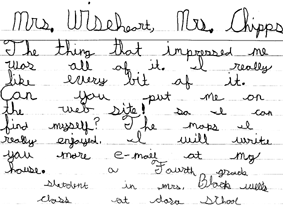 Mrs. Wiseheart, Mrs. Chipps
The thing that impressed me
was all of it. I really
like every bit of it.
Can you put me on
the web site! so I can
find myself? The maps I
really enjoyed. I will write
you more e-mail at my
house. a Fourth grade
student in mrs. Black wells
class at dosa school